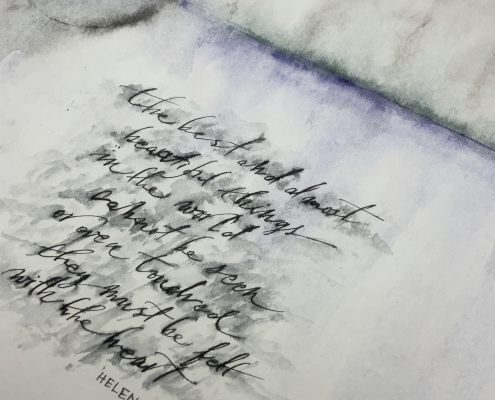 the best and most
beautiful things
in the world
cannot be seen
or even touched
they must be felt
with the heart
HELEN